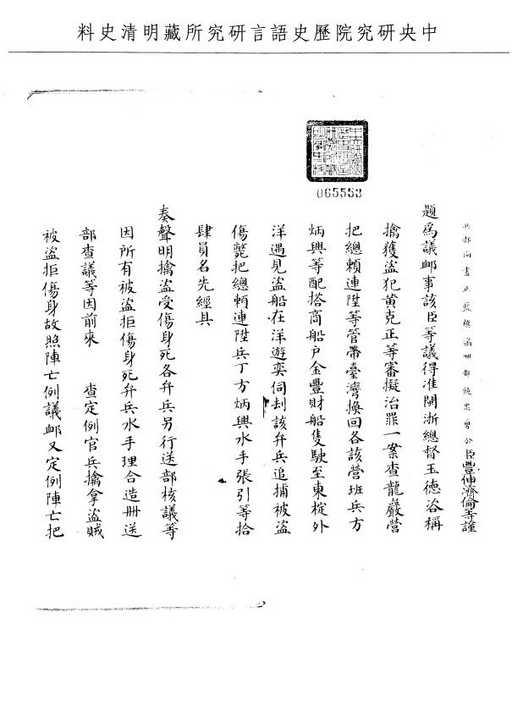 中央研究院歷史語言研究所藏明清史料
065553
臣豐伸濟倫等謹
題為議䘏事該臣等議得准閩浙總督玉德咨稱
擒獲盜犯黃克正等審擬治罪一案查龍巖營
把總賴連陞等管帶臺灣換回各該營班兵方
炳興等配搭商船戶金豐財船隻駛至東椗外
洋遇見盜船在洋遊奕伺刦該弁兵追捕被盜
傷斃把總賴連陞兵丁方炳興水手張引等拾
肆員名先經具
奏聲明擒盜受傷身死各弁兵另行送部核議等
因所有被盜拒傷身死弁兵水手理合造冊送
部查議等因前來 查定例官兵擒拿盜賊
被盜拒傷身故照陣亡例議䘏又定例陣亡把